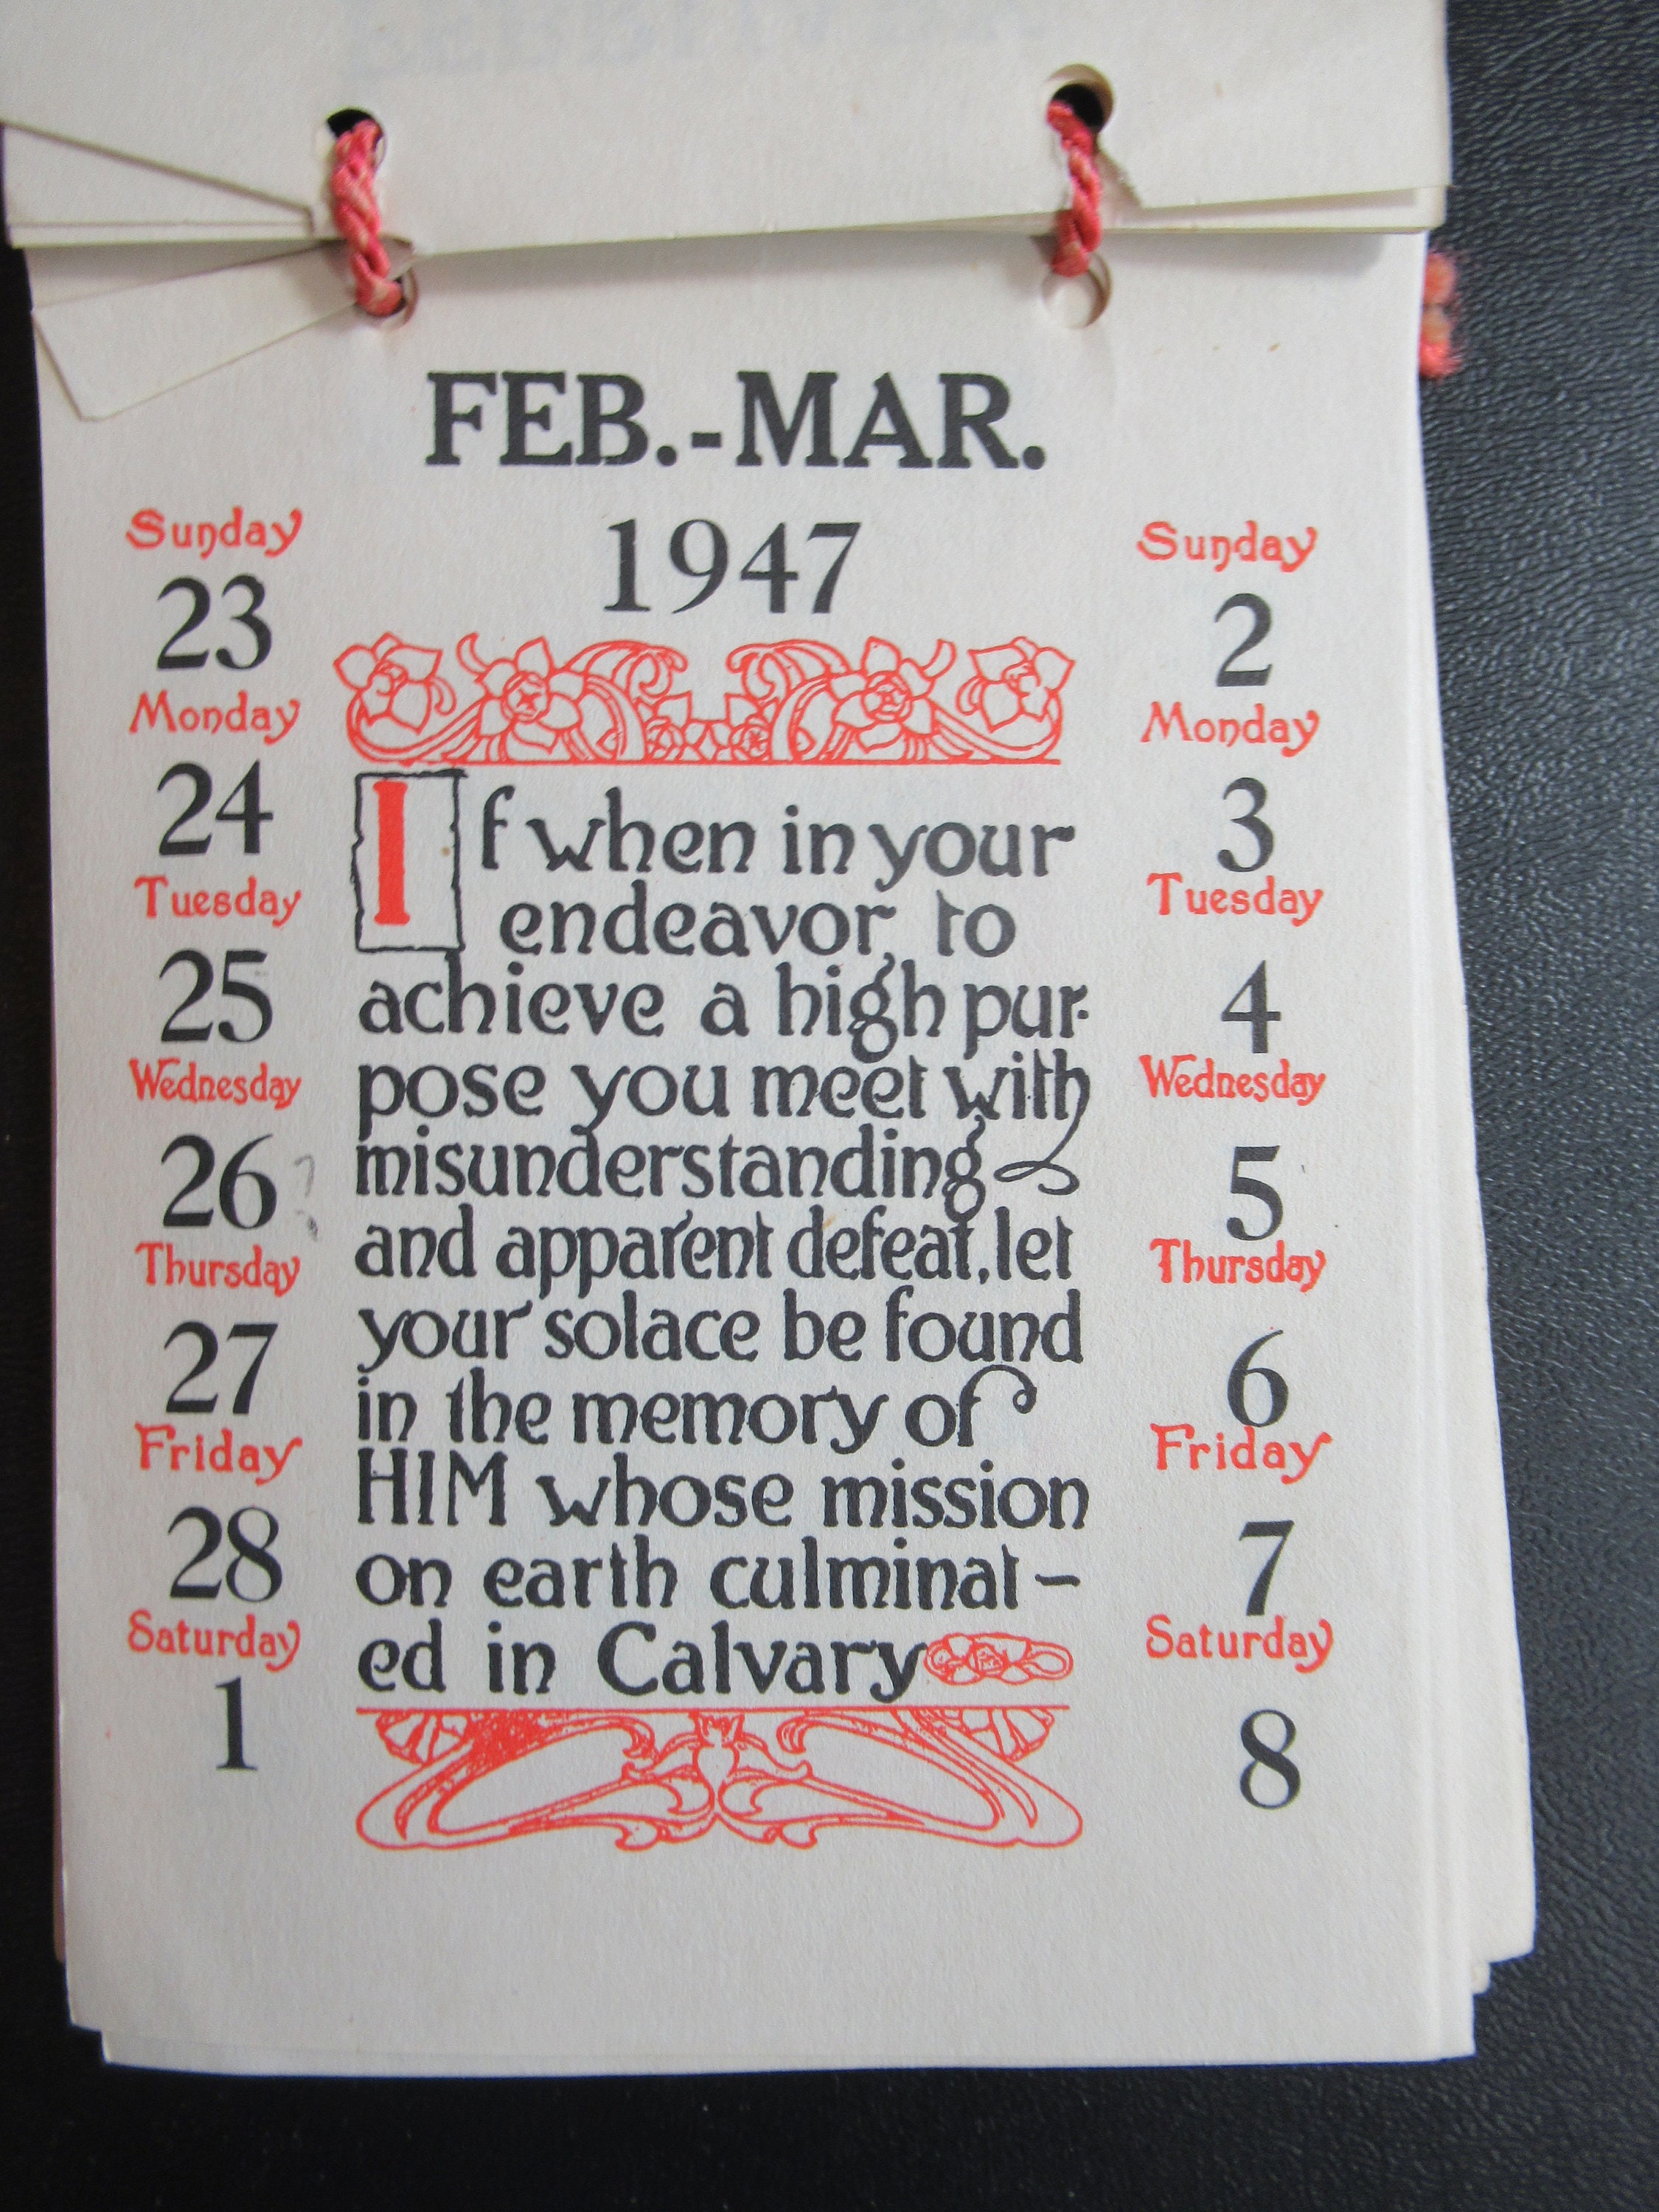 FEB.-MAR.
1947
Sunday
23
Monday
24
Tuesday
25
Wednesday
26
Thursday
27
Friday
28
Saturday
1
If when in your
endeavor, to
achieve a high pur-
pose you meet with
misunderstanding
and apparent defeat, let
your solace be found
in the memory of
HIM whose mission
on earth culminat-
ed in Calvary
Sunday
2
Monday
3
Tuesday
4
Wednesday
5
Thursday
6
Friday
7
Saturday
8